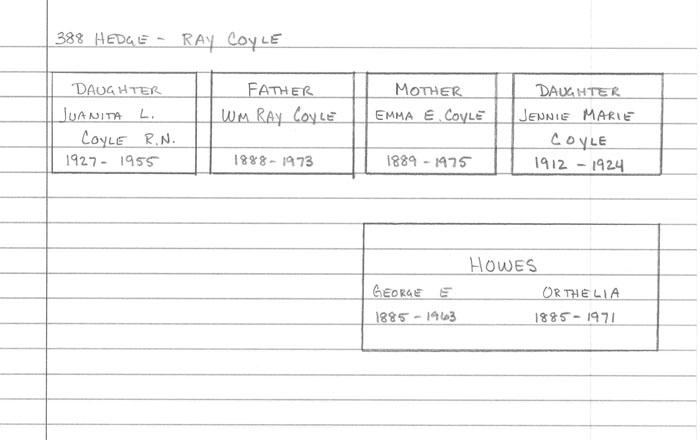 388 HEDGE - RAY COYLE
DAUGHTER
JUANITA L.
COYLE R.N.
1927 - 1955
FATHER
WM RAY COYLE
1888 - 1973
MOTHER
EMMA E. COYLE
1889 - 1975
DAUGHTER
JENNIE MARIE
COYLE
1912 - 1924
HOWES
GEORGE E ORTHELIA
1885 - 1963 1885 - 1971